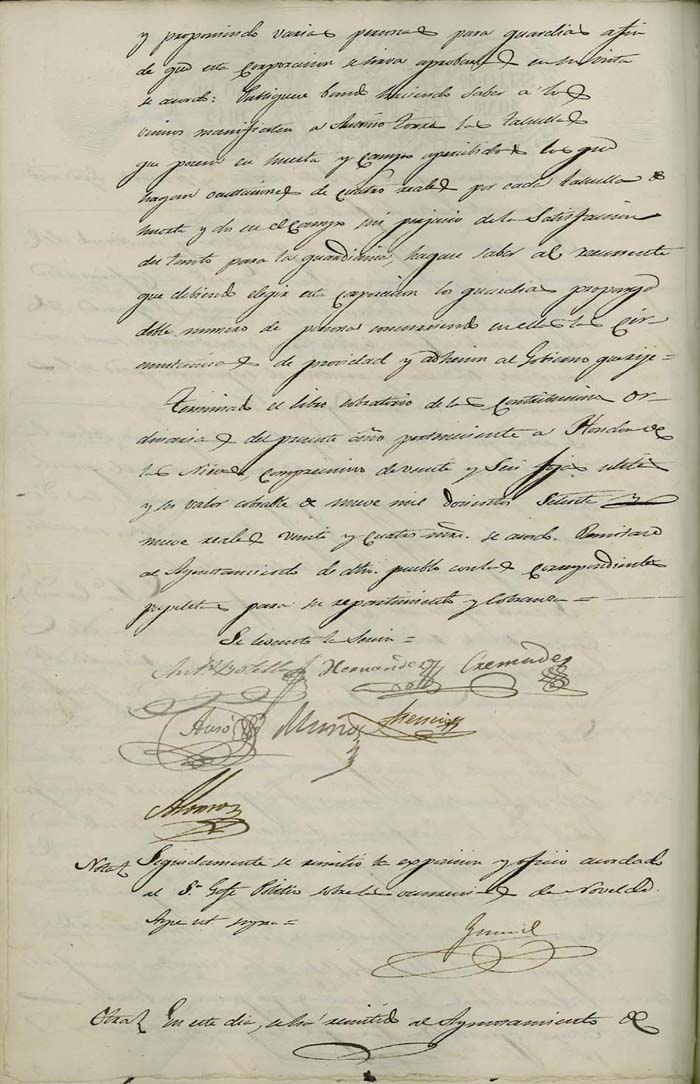 y proponiendo varias personas para guardias a fin
de que esta Corporacion se sirva aprobarles en su vista
se acordó: Publiquese bando haciendo saber a los
vecinos manifiesten a Torre las tahullas
que poseen en huerta y campo apercibidos los que
hagan ocultaciones de cuatro reales por cada tahulla de
huerta y dos en el campo sin perjuicio de la Satisfaccion
del tanto para la guardiania, hagase saber al
que debiendo elegir esta corporacion los guardias proponga
doble numero de personas concurriendo en ellas las Cir-
cunstancias de providad y adhesion al Gobierno que rije=
Terminado el libro cobratorio de las Contribuciones Or-
dinarias del presente año perteneciente a Hondon de
las Nieves, comprensivo de veinte y Seis fojas utiles
y su valor cobrable de nueve mil docientos Setenta y
nueve reales veinte y cuatro mrs. se acordó. Remitase
al Ayuntamiento de dho. pueblo con las Correspondientes
papeletas para su repartimiento y Cobranza=
Se levantó la Sesion=
Antº Botella Hernández Cremades
Auso Muñoz Asencio
Alonso
Nota Seguidamente se remitio la exposicion y oficio acordado
al Sr. Gefe Politico sobre las de Novelda.
Aspe ut supra=
Otra En este dia, se ha remitido al Ayuntamiento de